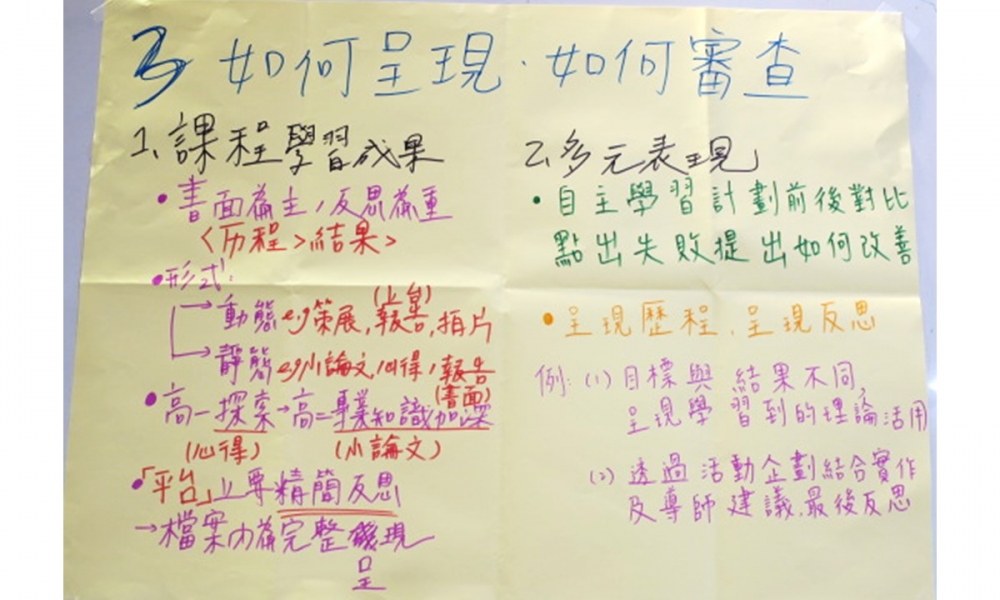 3 如何呈現．如何審查
1、課程學習成果
•書面為主，反思為重
〈历程>結果〉
•形式:
→動態 e.g策展,報告,拍片
(上台)
→靜態 e.g小論文,心得,報告
(書面)
•高一探索→高二專業知識加深
(心得) (小論文)
•「平台」上要精簡反思
→檔案內為完整現
呈
2、多元表現
•自主學習計劃前後對比
點出失敗提出如何改善
•呈現歷程、呈現反思
例:(1)目標與結果不同,
呈現學習到的理論活用
(2)透過活動企劃結合實作
及導師建議,最後反思